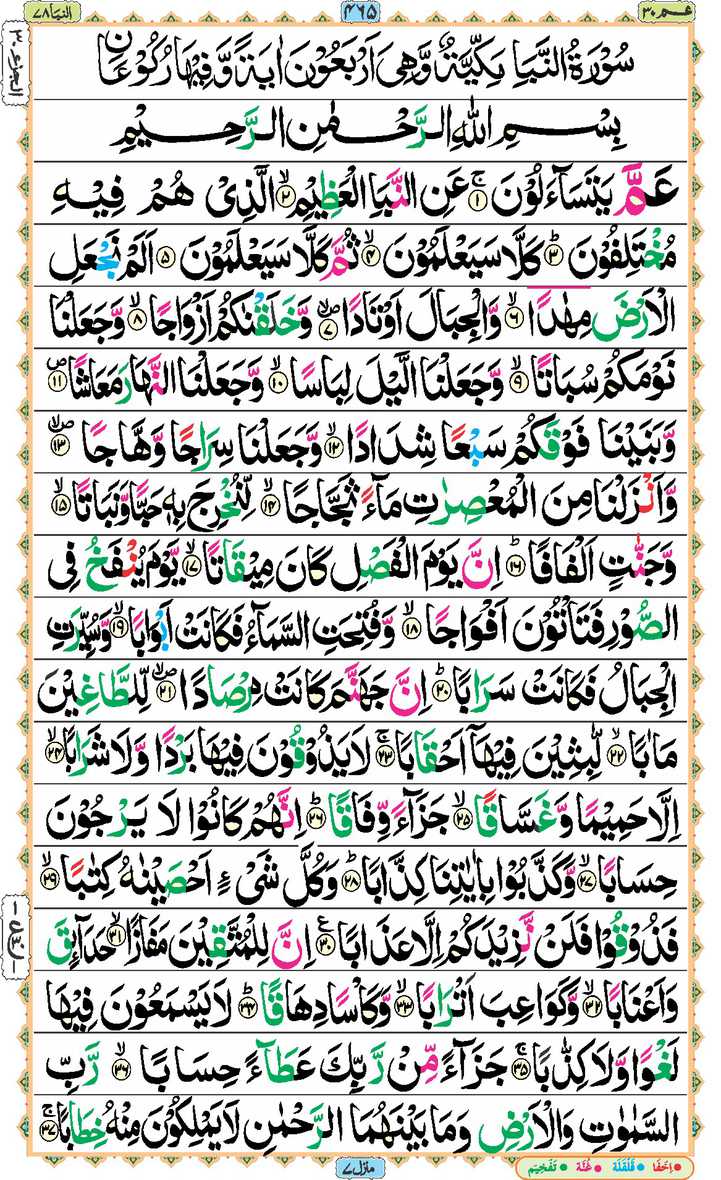 عم ٣٠ ٤٦٥ النبا ٧٨
سُوْرَةُ النَّبَاِ مَكِّيَّةٌ وَّهِىَ اَرْبَعُوْنَ اٰيَةً وَّفِيْهَا رُكُوْعَانِ
بِسْمِ اللّٰهِ الرَّحْمٰنِ الرَّحِيْمِ
عَمَّ يَتَسَآءَلُوْنَ ۚ﴿۱﴾ عَنِ النَّبَاِ الْعَظِيْمِ ۙ﴿۲﴾ الَّذِىْ هُمْ فِيْهِ
مُخْتَلِفُوْنَ ؕ﴿۳﴾ كَلَّا سَيَعْلَمُوْنَ ۙ﴿۴﴾ ثُمَّ كَلَّا سَيَعْلَمُوْنَ ﴿۵﴾ اَلَمْ نَجْعَلِ
الْاَرْضَ مِهٰدًا ۙ﴿۶﴾ وَّالْجِبَالَ اَوْتَادًا ۪ۙ﴿۷﴾ وَّخَلَقْنٰكُمْ اَزْوَاجًا ۙ﴿۸﴾ وَّجَعَلْنَا
نَوْمَكُمْ سُبَاتًا ۙ﴿۹﴾ وَّجَعَلْنَا الَّيْلَ لِبَاسًا ۙ﴿۱۰﴾ وَّجَعَلْنَا النَّهَارَ مَعَاشًا ۪﴿۱۱﴾
وَّبَنَيْنَا فَوْقَكُمْ سَبْعًا شِدَادًا ۙ﴿۱۲﴾ وَّجَعَلْنَا سِرَاجًا وَّهَّاجًا ۪ۙ﴿۱۳﴾
وَّاَنْزَلْنَا مِنَ الْمُعْصِرٰتِ مَآءً ثَجَّاجًا ۙ﴿۱۴﴾ لِّنُخْرِجَ بِهٖ حَبًّا وَّنَبَاتًا ۙ﴿۱۵﴾
وَّجَنّٰتٍ اَلْفَافًا ؕ﴿۱۶﴾ اِنَّ يَوْمَ الْفَصْلِ كَانَ مِيْقَاتًا ۙ﴿۱۷﴾ يَّوْمَ يُنْفَخُ فِى
الصُّوْرِ فَتَاْتُوْنَ اَفْوَاجًا ۙ﴿۱۸﴾ وَّفُتِحَتِ السَّمَآءُ فَكَانَتْ اَبْوَابًا ۙ﴿۱۹﴾ وَّسُيِّرَتِ
الْجِبَالُ فَكَانَتْ سَرَابًا ؕ﴿۲۰﴾ اِنَّ جَهَنَّمَ كَانَتْ مِرْصَادًا ۪ۙ﴿۲۱﴾ لِّلطَّاغِيْنَ
مَاٰبًا ۙ﴿۲۲﴾ لّٰبِثِيْنَ فِيْهَاۤ اَحْقَابًا ۚ﴿۲۳﴾ لَا يَذُوْقُوْنَ فِيْهَا بَرْدًا وَّلَا شَرَابًا ۙ﴿۲۴﴾
اِلَّا حَمِيْمًا وَّغَسَّاقًا ۙ﴿۲۵﴾ جَزَآءً وِّفَاقًا ؕ﴿۲۶﴾ اِنَّهُمْ كَانُوْا لَا يَرْجُوْنَ
حِسَابًا ۙ﴿۲۷﴾ وَّكَذَّبُوْا بِاٰيٰتِنَا كِذَّابًا ؕ﴿۲۸﴾ وَكُلَّ شَىْءٍ اَحْصَيْنٰهُ كِتٰبًا ۙ﴿۲۹﴾
فَذُوْقُوْا فَلَنْ نَّزِيْدَكُمْ اِلَّا عَذَابًا ۠﴿۳۰﴾ اِنَّ لِلْمُتَّقِيْنَ مَفَازًا ۙ﴿۳۱﴾ حَدَآئِقَ
وَاَعْنَابًا ۙ﴿۳۲﴾ وَّكَوَاعِبَ اَتْرَابًا ۙ﴿۳۳﴾ وَّكَاْسًا دِهَاقًا ؕ﴿۳۴﴾ لَا يَسْمَعُوْنَ فِيْهَا
لَغْوًا وَّلَا كِذّٰبًا ۚ﴿۳۵﴾ جَزَآءً مِّنْ رَّبِّكَ عَطَآءً حِسَابًا ۙ﴿۳۶﴾ رَّبِّ
السَّمٰوٰتِ وَالْاَرْضِ وَمَا بَيْنَهُمَا الرَّحْمٰنِ لَا يَمْلِكُوْنَ مِنْهُ خِطَابًا ۚ﴿۳۷﴾
منزل ٧ • اِخفَا • قَلْقَلَة • غُنَّة • تَفْخِيْم